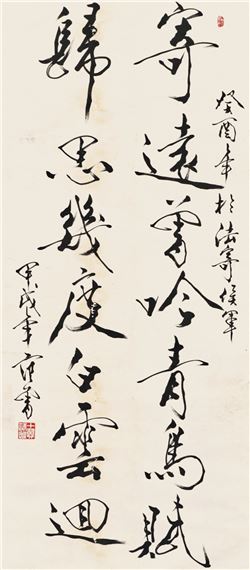 癸酉年於法寄侯軍
寄遠曾吟青鳥賦
歸思幾度白雲迴
甲戌年 范曾